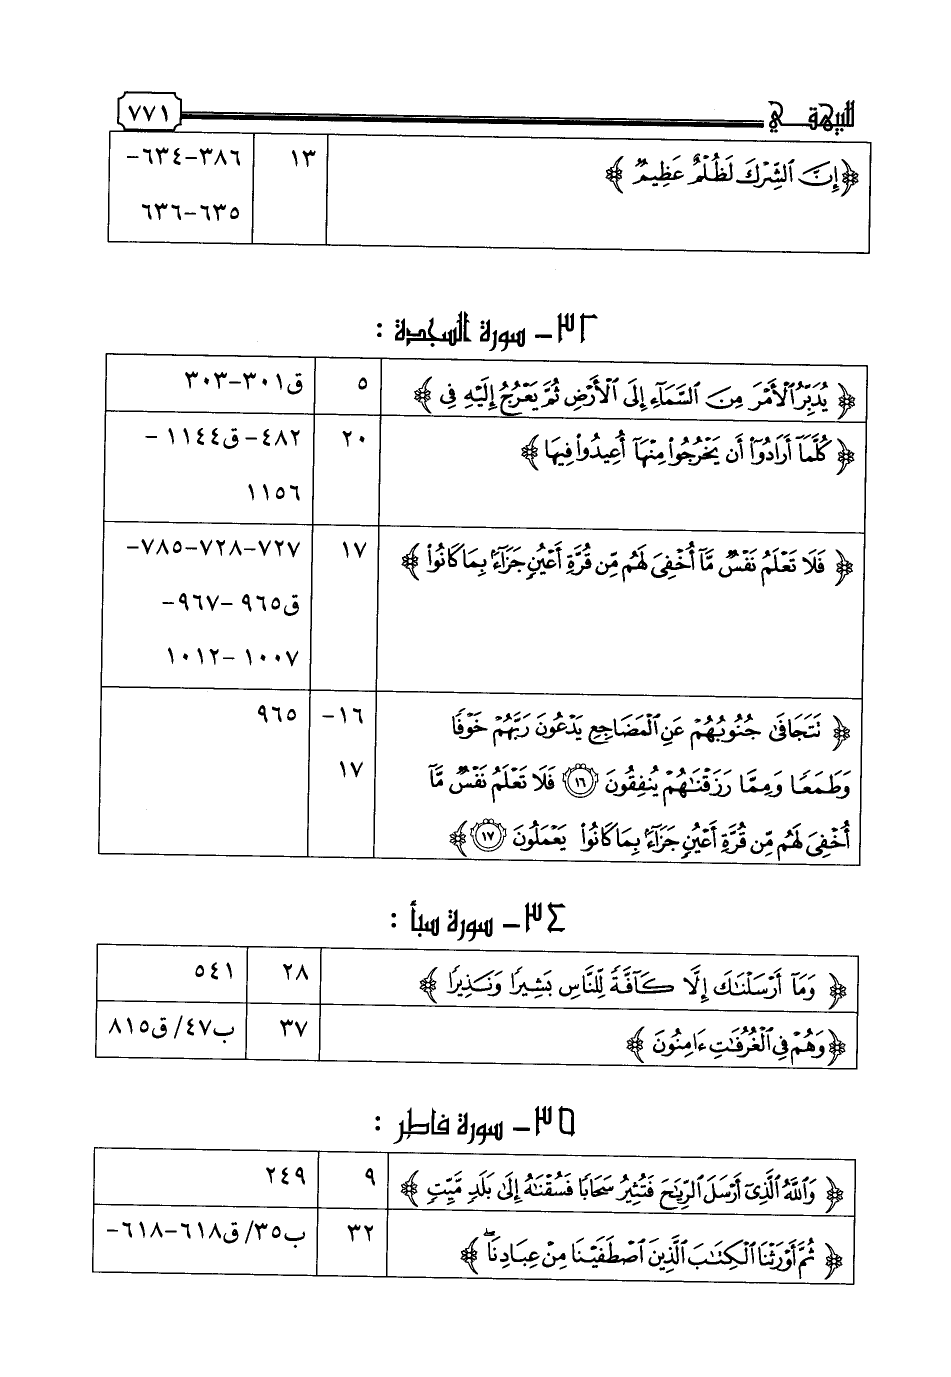 للبيهقي ٧٧١
﴿إِنَّ ٱلشِّرْكَ لَظُلْمٌ عَظِيمٌ﴾ ١٣ ٣٨٦-٦٣٤-
٦٣٥-٦٣٦
٣٢- سورة السجدة :
﴿يُدَبِّرُ ٱلْأَمْرَ مِنَ ٱلسَّمَآءِ إِلَى ٱلْأَرْضِ ثُمَّ يَعْرُجُ إِلَيْهِ فِى﴾ ٥ ق٣٠١-٣٠٣
﴿كُلَّمَآ أَرَادُوٓا۟ أَن يَخْرُجُوا۟ مِنْهَآ أُعِيدُوا۟ فِيهَا﴾ ٢٠ ٤٨٢-ق١١٤٤-
١١٥٦
﴿فَلَا تَعْلَمُ نَفْسٌ مَّآ أُخْفِىَ لَهُم مِّن قُرَّةِ أَعْيُنٍ جَزَآءًۢ بِمَا كَانُوا۟﴾ ١٧ ٧٢٧-٧٢٨-٧٨٥-
ق٩٦٥-٩٦٧-
١٠٠٧-١٠١٢
﴿نَتَجَافَىٰ جُنُوبُهُمْ عَنِ ٱلْمَضَاجِعِ يَدْعُونَ رَبَّهُمْ خَوْفًا ١٦- ٩٦٥
وَطَمَعًا وَمِمَّا رَزَقْنَـٰهُمْ يُنفِقُونَ ١٦ فَلَا تَعْلَمُ نَفْسٌ مَّآ ١٧
أُخْفِىَ لَهُم مِّن قُرَّةِ أَعْيُنٍ جَزَآءًۢ بِمَا كَانُوا۟ يَعْمَلُونَ ١٧﴾
٣٤- سورة سبأ :
﴿وَمَآ أَرْسَلْنَـٰكَ إِلَّا كَآفَّةً لِّلنَّاسِ بَشِيرًا وَنَذِيرًا﴾ ٢٨ ٥٤١
﴿وَهُمْ فِى ٱلْغُرُفَـٰتِ ءَامِنُونَ﴾ ٣٧ ب٤٧/ق٨١٥
٣٥- سورة فاطر :
﴿وَٱللَّهُ ٱلَّذِىٓ أَرْسَلَ ٱلرِّيَـٰحَ فَتُثِيرُ سَحَابًا فَسُقْنَـٰهُ إِلَىٰ بَلَدٍ مَّيِّتٍ﴾ ٩ ٢٤٩
﴿ثُمَّ أَوْرَثْنَا ٱلْكِتَـٰبَ ٱلَّذِينَ ٱصْطَفَيْنَا مِنْ عِبَادِنَا ۖ﴾ ٣٢ ب٣٥/ق٦١٨-٦١٨-